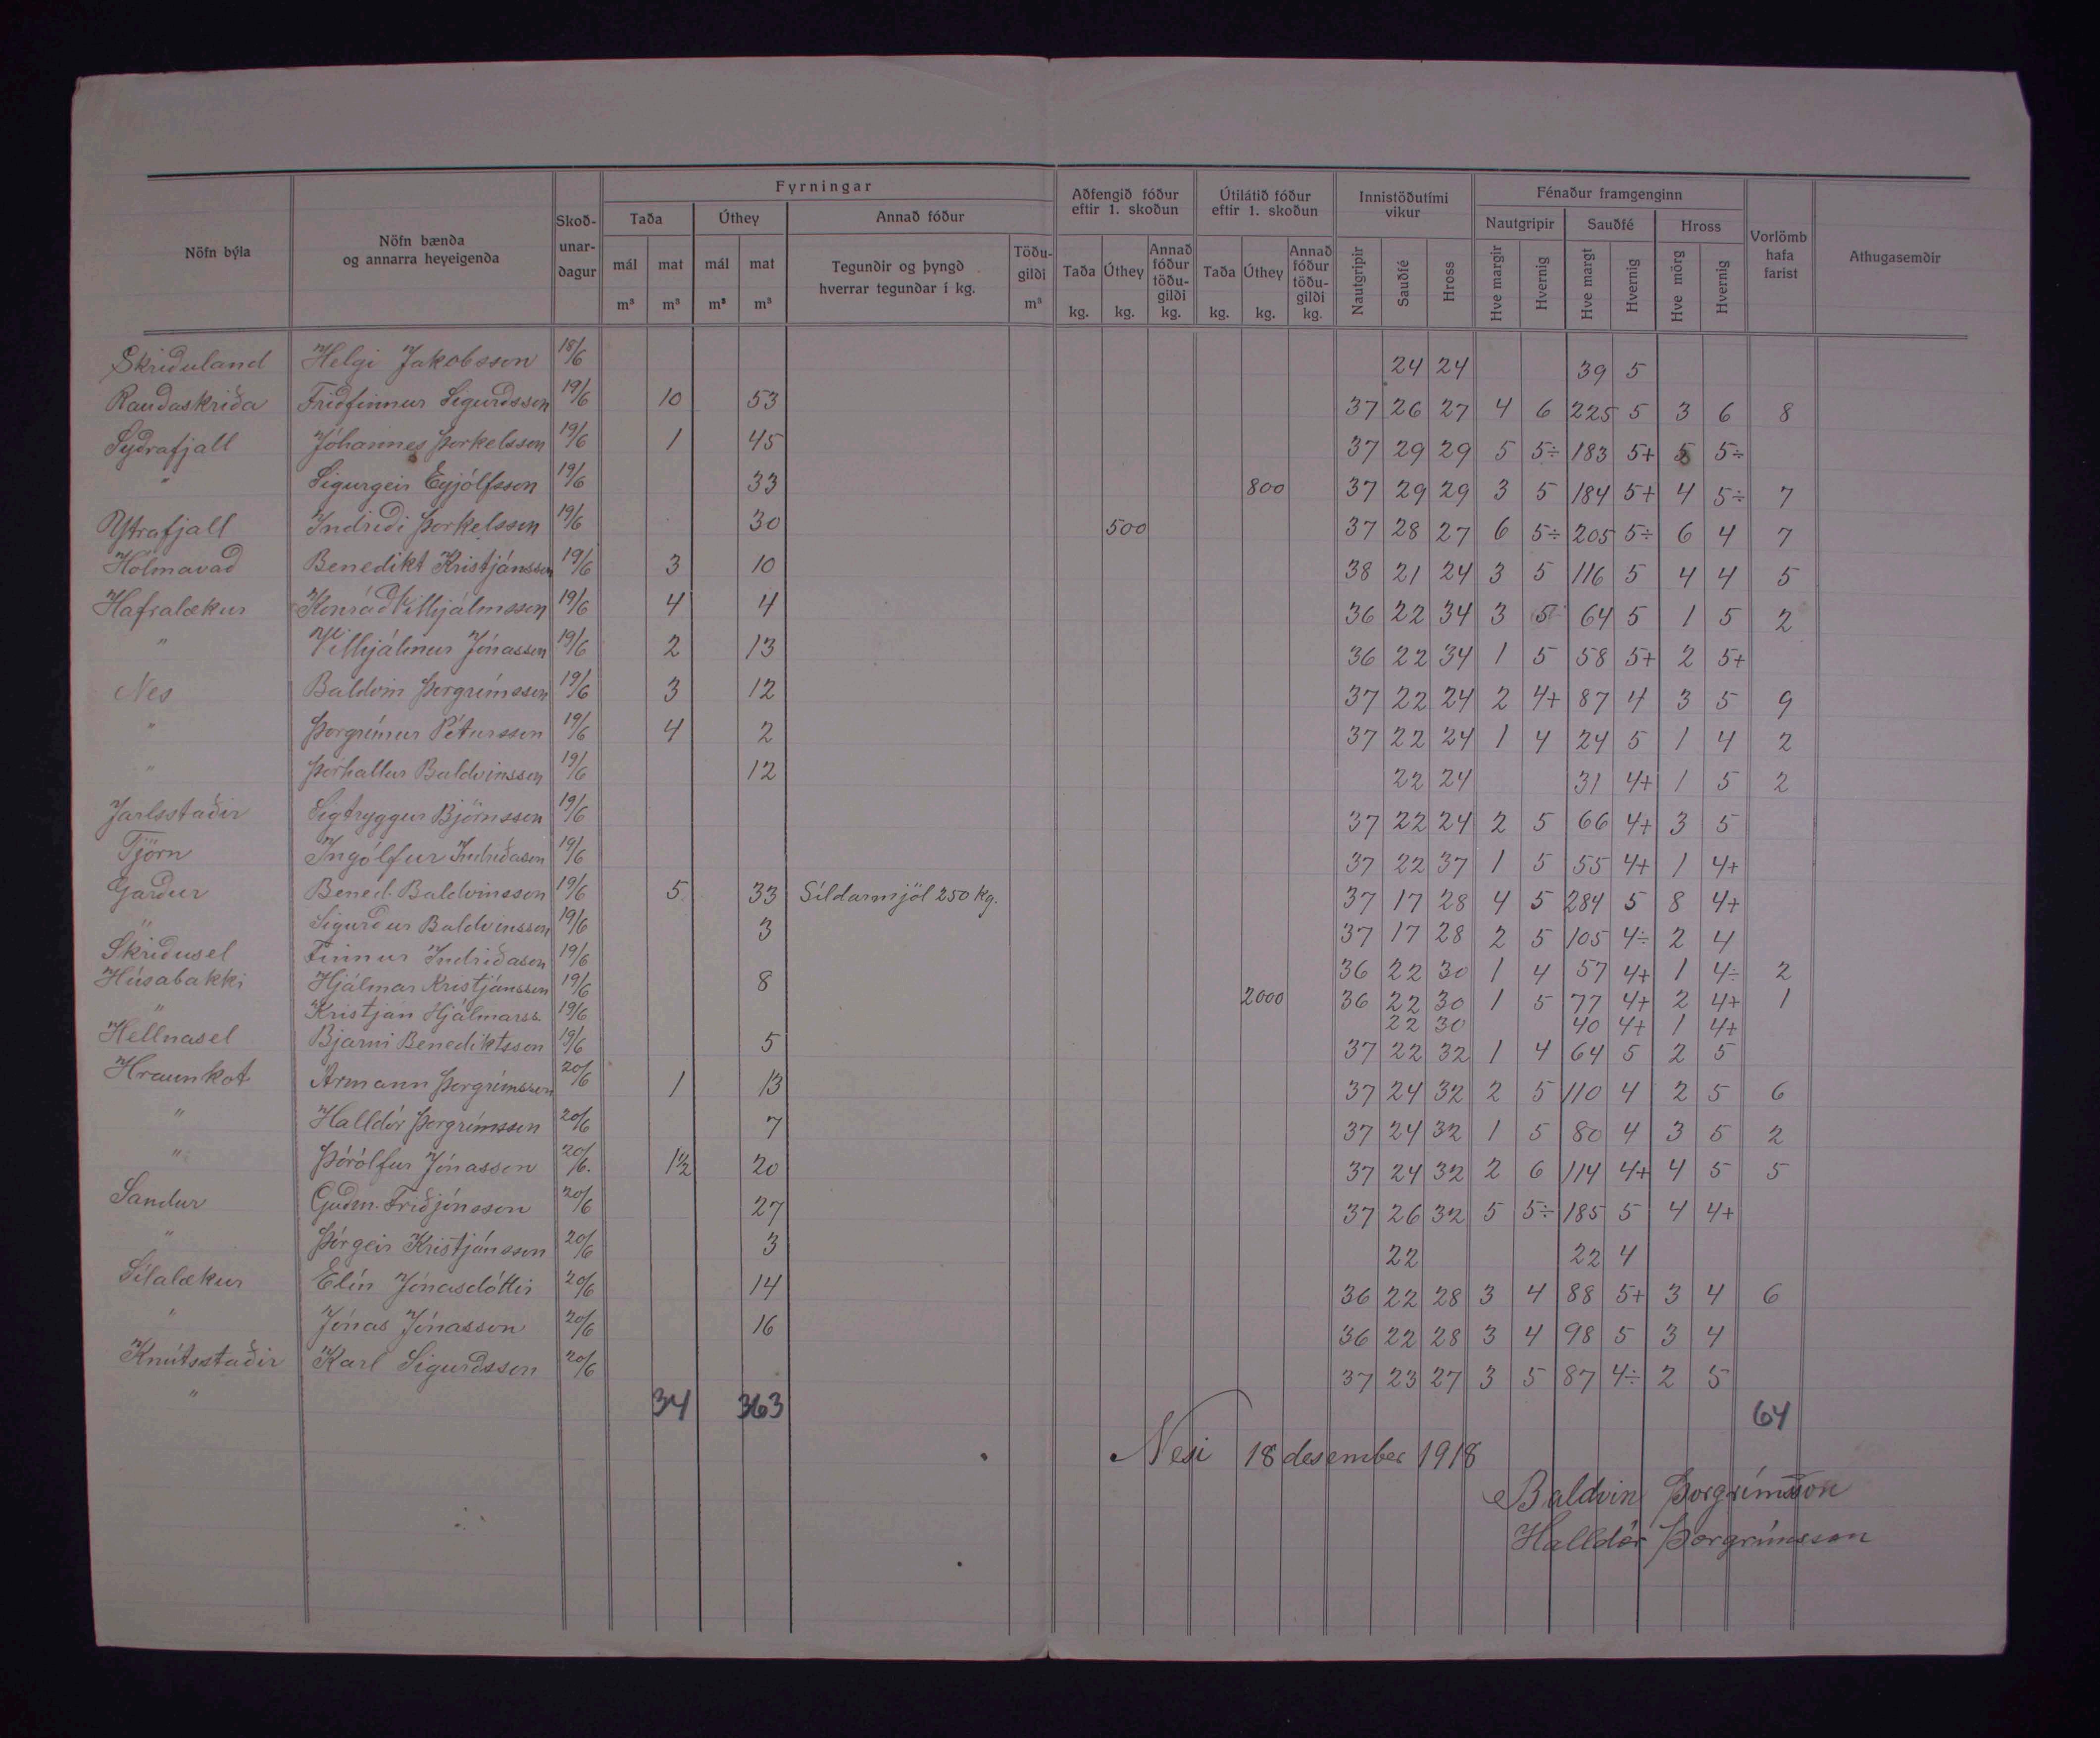 Nöfn býla | Nöfn bænda og annarra heyeigenda | Skoð-unar-dagur | Fyrningar | Aðfengið fóður eftir 1. skoðun | Útilátið fóður eftir 1. skoðun | Innistöðutími vikur | Fénaður framgenginn | Vorlömb hafa farist | Athugasemdir
Taða | Úthey | Annað fóður | Nautgripir | Sauðfé | Hross
mál m³ | mat m³ | mál m³ | mat m³ | Tegundir og þyngd hverrar tegundar í kg. | Töðu-gildi m³ | Taða kg. | Úthey kg. | Annað fóður töðu-gildi kg. | Taða kg. | Úthey kg. | Annað fóður töðu-gildi kg. | Nautgripir | Sauðfé | Hross | Hve margir | Hvernig | Hve margt | Hvernig | Hve mörg | Hvernig
Skriðuland Helgi Jakobsson 18/6 24 24 39 5
Rauðaskriða Friðfinnur Sigurðsson 19/6 10 53 37 26 27 4 6 225 5 3 6 8
Sýðrafjall Jóhannes Þorkelsson 19/6 1 45 37 29 29 5 5÷ 183 5+ 5 5÷
" Sigurgeir Eyjólfsson 19/6 33 800 37 29 29 3 5 184 5+ 4 5÷ 7
Ytrafjall Indriði Þorkelsson 19/6 30 500 37 28 27 6 5÷ 205 5÷ 6 4 7
Hólmavað Benedikt Kristjánsson 19/6 3 10 38 21 24 3 5 116 5 4 4 5
Hafralækur Konráð Vilhjálmsson 19/6 4 4 36 22 34 3 5 64 5 1 5 2
" Vilhjálmur Jónasson 19/6 2 13 36 22 34 1 5 58 5+ 2 5+
Nes Baldvin Þorgrímsson 19/6 3 12 37 22 24 2 4+ 87 4 3 5 9
" Þorgrímur Pétursson 19/6 4 2 37 22 24 1 4 24 5 1 4 2
" Þórhallur Baldvinsson 19/6 12 22 24 31 4+ 1 5 2
Jarlsstaðir Sigtryggur Björnsson 19/6 37 22 24 2 5 66 4+ 3 5
Tjörn Ingólfur Indriðason 19/6 37 22 37 1 5 55 4+ 1 4+
Garður Bened. Baldvinsson 19/6 5 33 Síldarmjöl 250 kg. 37 17 28 4 5 284 5 8 4+
" Sigurður Baldvinsson 19/6 3 37 17 28 2 5 105 4÷ 2 4
Skriðusel Finnur Indriðason 19/6 36 22 30 1 4 57 4+ 1 4÷ 2
Húsabakki Hjálmar Kristjánsson 19/6 8 2000 36 22 30 1 5 77 4+ 2 4+ 1
" Kristján Hjálmarss. 19/6 22 30 40 4+ 1 4+
Hellnasel Bjarni Benediktsson 19/6 5 37 22 32 1 4 64 5 2 5
Hraunkot Ármann Þorgrímsson 20/6 1 13 37 24 32 2 5 110 4 2 5 6
" Halldór Þorgrímsson 20/6 7 37 24 32 1 5 80 4 3 5 2
" Þórólfur Jónasson 20/6. 1½ 20 37 24 32 2 6 114 4+ 4 5 5
Sandur Guðm. Friðjónsson 20/6 27 37 26 32 5 5÷ 185 5 4 4+
" Þórgeir Kristjánsson 20/6 3 22 22 4
Sílalækur Elín Jónasdóttir 20/6 14 36 22 28 3 4 88 5+ 3 4 6
" Jónas Jónasson 20/6 16 36 22 28 3 4 98 5 3 4
Knútsstaðir Karl Sigurðsson 20/6 37 23 27 3 5 87 4÷ 2 5
" 34 363 64
Nesi 18 desember 1918
Baldvin Þorgrímsson
Halldór Þorgrímsson